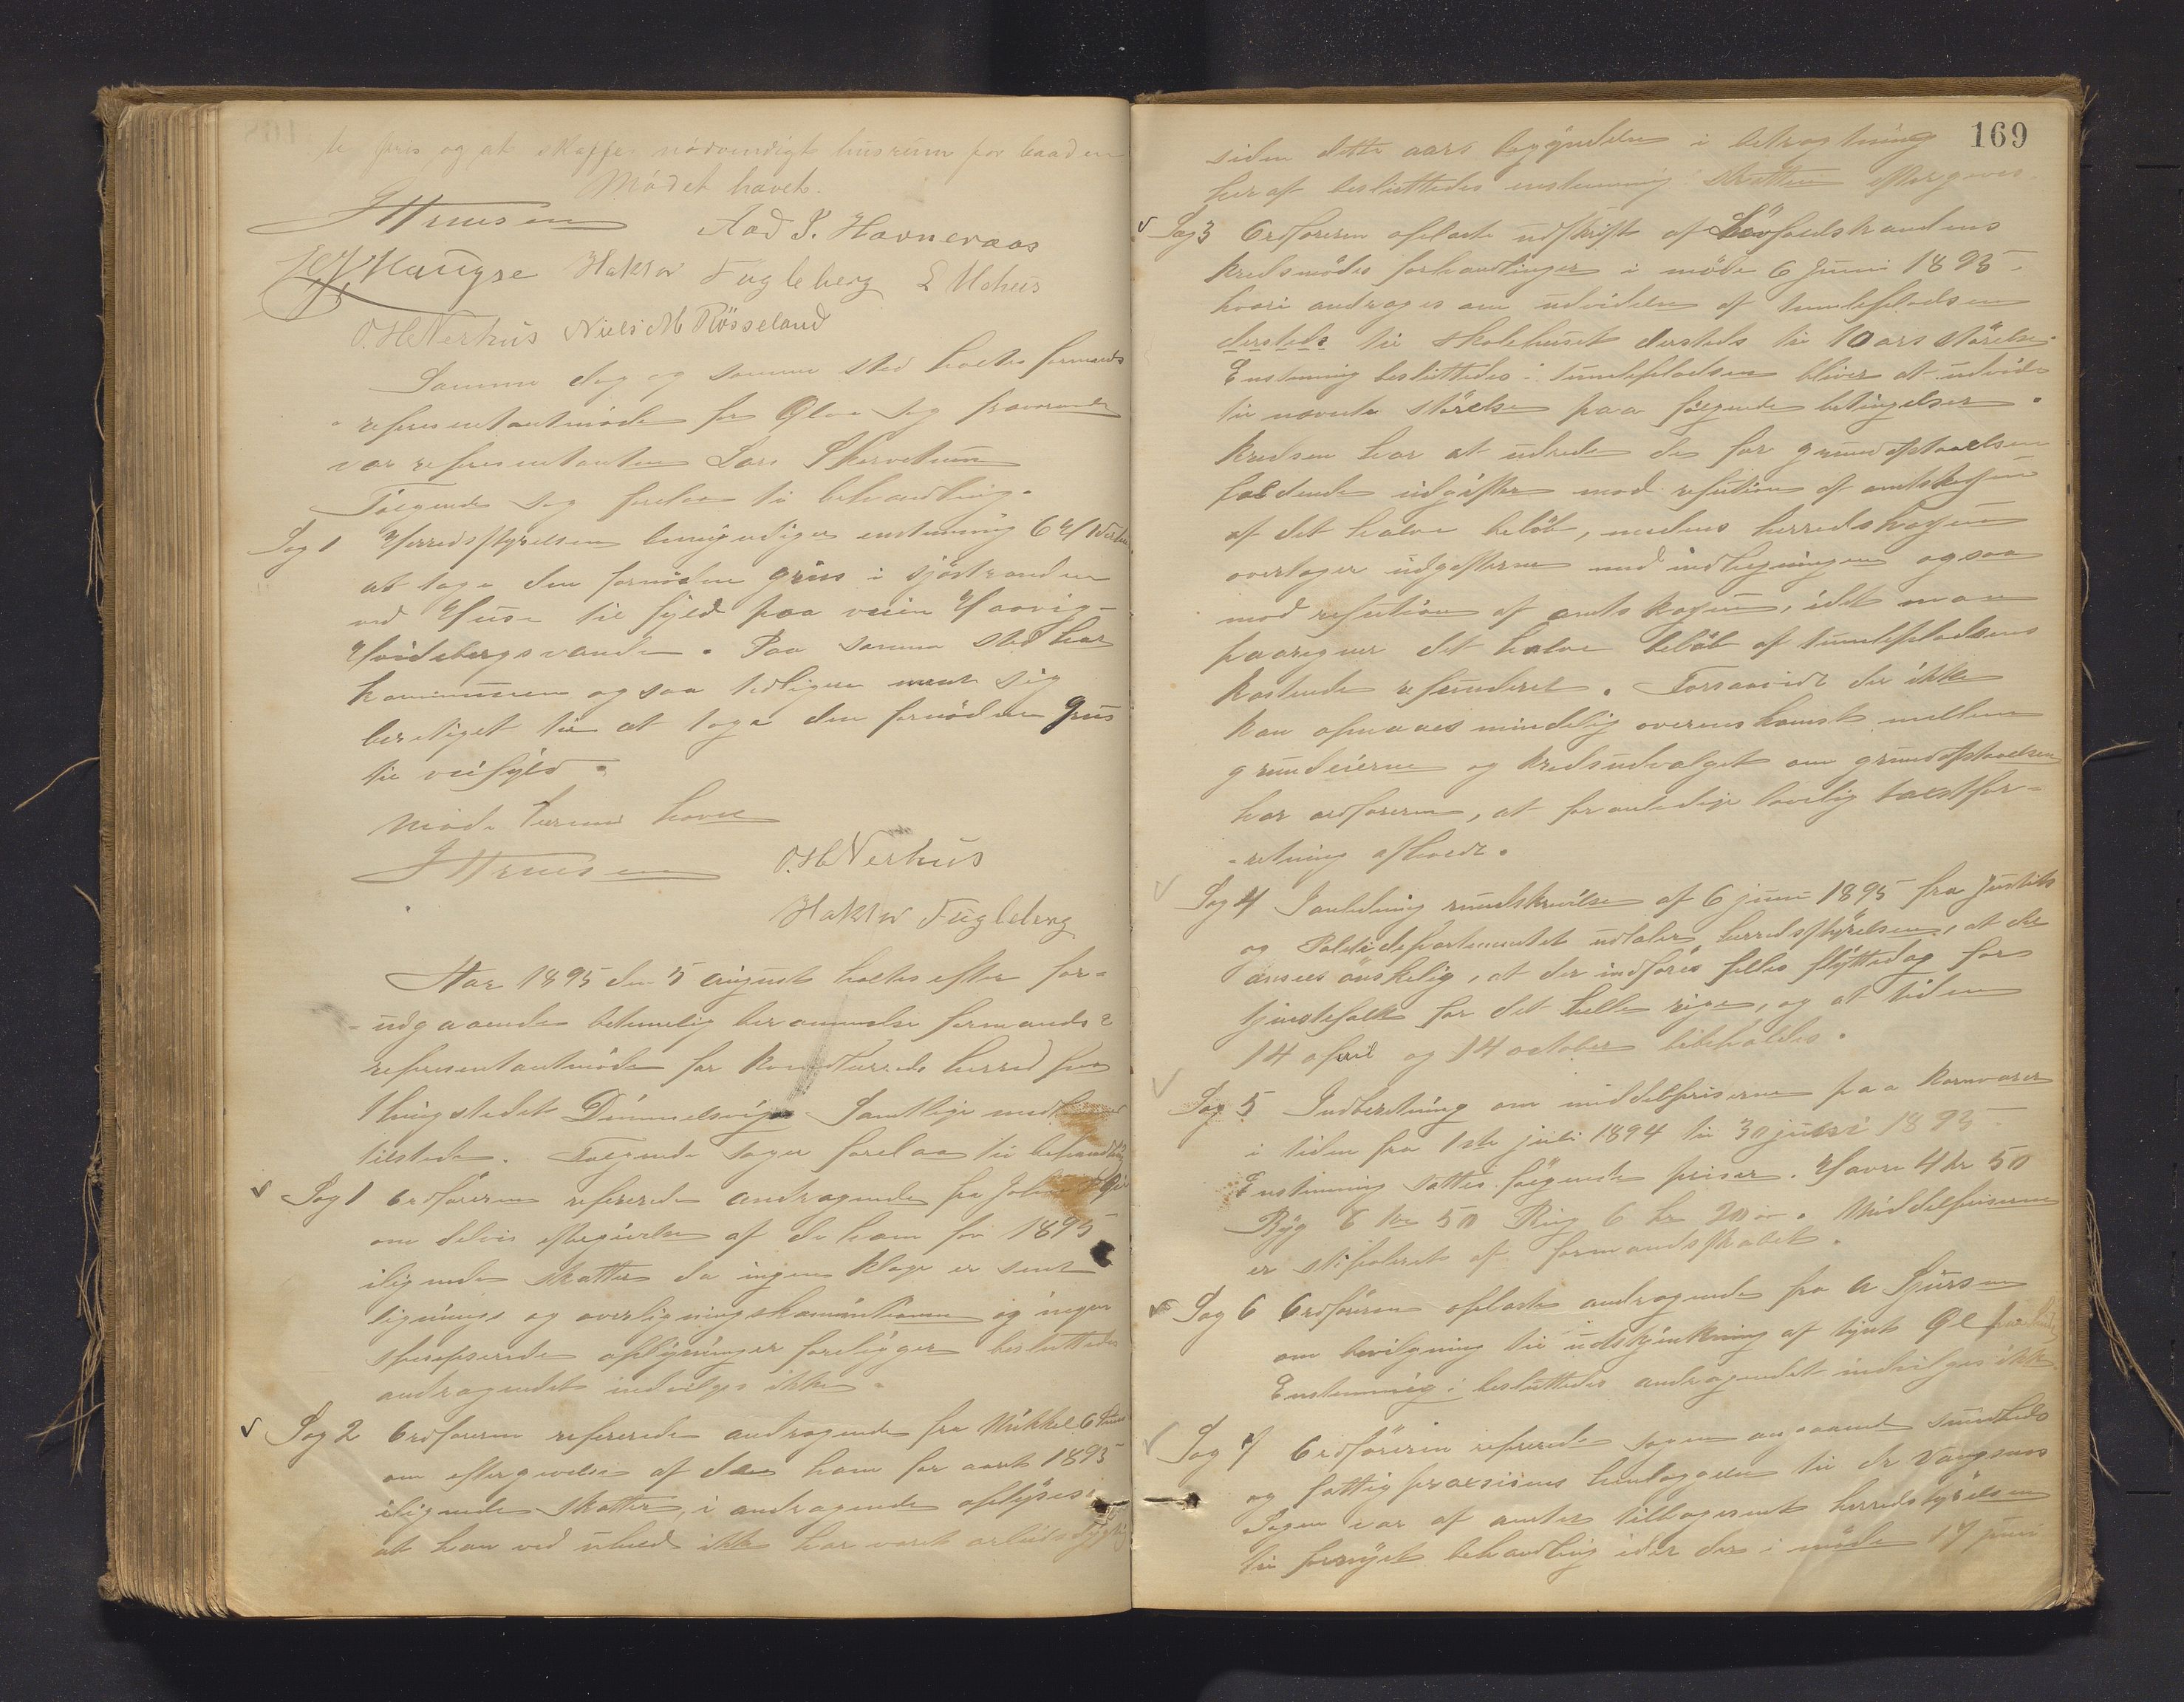 te pris og at skaffe nödvendigt husrum for baaden
Mödet hævet.
Aad J. Havneraas
Haugse Haktor Fugleberg
O. H. Nerhus Niels M Rösseland
Samme dag og samme sted holdtes formands
representantmöde for Ölve Sog fraværende
var representanten Lars
Fölgende sag forelaa til behandling.
Sag 1 Herredsstyrelsen bemyndiger enstemmig
at tage den fornödne grus i sjöstranden
ved Huse til fyld paa veien Haavig-
Hoidebergsvandet. Paa samme sted har
kommunen ogsaa tidligere ment sig
beretiget til at tage den fornödne grus
til veifyld.
Möde termin hævet
O. H. Nerhus
Haktor Fugleberg
Aar 1895 den 5 august holtes efter for-
udgaaende betimelig berammelse formands &
representantmöde for Kvindherreds herred paa
thingstedet Dimmelsvigen Samtlige
tilstede. Fölgende sager forelaa til behandling
Sag 1 Ordföreren refererede andragende fra John
om delvis eftergivelse af de ham for 1895
ilignede skatter da ingen klage er sent
lignings og overligningskommissionen og ingen
oplysninger foreligger besluttedes
andragendet indvilges ikke.
Sag 2 Ordföreren refererede andragende fra Mikkel
om eftergivelse af den ham for aaret 1895
ilignede skatter, i andragende oplyses
at han ved uheld ikke har været arbeidsdygtig
169
siden dette aars begyndelse i betragtning
heraf besluttedes enstemmig skatten eftergives.
Sag 3 Ordföreren oplæste udskrift af
kredsmödes forhandlinger i möde 6 Juni 1895
hvori andrages om udvidelse af tumlepladsen
dersteds til skolehuset dersteds til 10 ars störelse.
Enstemmig besluttedes: tumlepladsen bliver at udvide
til nævnte störelse paa fölgende betingelser.
Kredsen har at udrede de for grundafstaaelsen
faldende udgifter mod refution af amtskassen
af det halve belöb, medens herredskassen
overtager udgifterne med indhegningen ogsaa
mod refution af amtskassen, idet man
paaregner det halve belöb af tumlepladsens
kostende refunderet. Forsaavidt der ikke
kan opnaaes mindelig overenskomst mellem
grundeierne og kredsudvalget om grundafstaaelsen
har ordföreren, at foranledige lovelig taxtfor-
retning afholdt.
Sag 4 I anledning rundskrivelse af 6 juni 1895 fra Justits
og Politidepartementet udtaler herredsstyrelsen, at det
ansees önskelig, at der indföres felles flyttedag for
tjenestefolk for det helle rige, og at tiden
14 april og 14 october bibeholdes.
Sag 5 Indberetning om middelpriserne paa kornvarer
i tiden fra 1ste juli 1894 til 30 juni 1895
Enstemmig sattes fölgende priser. Havre 4 kr 50
Byg 6 kr 50 Rug 6 kr 20 öre. Middelpriserne
er stipoleret af formandsskabet.
Sag 6 Ordföreren oplæste andragende fra A Sjursen
om bevilgning til udskjænkning af tynt Öl
Enstemmig besluttedes andragendet indvilges ikke
Sag 7 Ordföreren refererede sagen angaaende sundheds
og fattigpraxisens henlæggelse til dr Vangsnes
Sagen var af amtet tilbagesent herredsstyrelsen
til fornyet behandling idet der i möde 17 juni